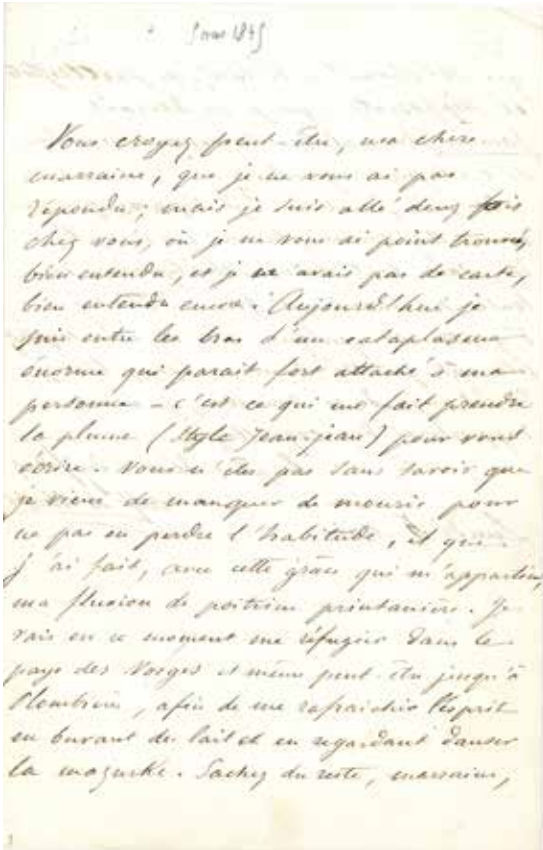 5 mai 1845
Vous croyez peut-être, ma chère
marraine, que je ne vous ai pas
répondu; mais je suis allé deux fois
chez vous, où je ne vous ai point trouvée,
bien entendu, et je n'avais pas de carte,
bien entendu encore. Aujourd'hui je
suis entre les bras d'un cataplasme
énorme qui parait fort attaché à ma
personne – c'est ce qui me fait prendre
la plume (style Jean-jean) pour vous
écrire. Vous n'êtes pas sans savoir que
je viens de manquer de mourir pour
ne pas en perdre l'habitude, et que
j'ai fait, avec cette grâce qui m'appartient,
ma fluxion de poitrine printanière. Je
vais en ce moment me réfugier dans le
pays des Vosges et même peut-être jusqu'à
Plombières, afin de me rafraichir l'esprit
en buvant du lait et en regardant danser
la mazurke. Sachez du reste, marraine,